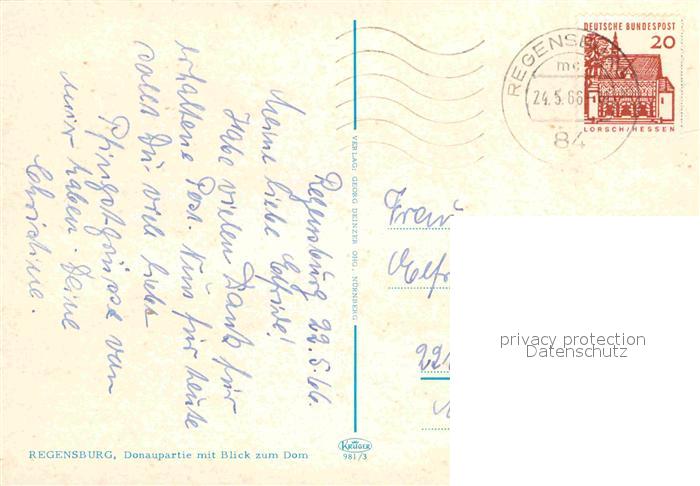 Regensburg 22.5.66.
Meine liebe Elfride!
Habe vielen Dank für
erhaltene Post. Nun für heute
sollst Du viel liebe
Pfingstgrüsse von
mir haben. Deine
Christine.
REGENSBURG, Donaupartie mit Blick zum Dom
VERLAG: GEORG DEINZER OHG., NÜRNBERG
KRÜGER
981/3
REGENSB
mc
24.5.66
84
DEUTSCHE BUNDESPOST
20
LORSCH/HESSEN
Frau
Elfr
privacy protection
Datenschutz